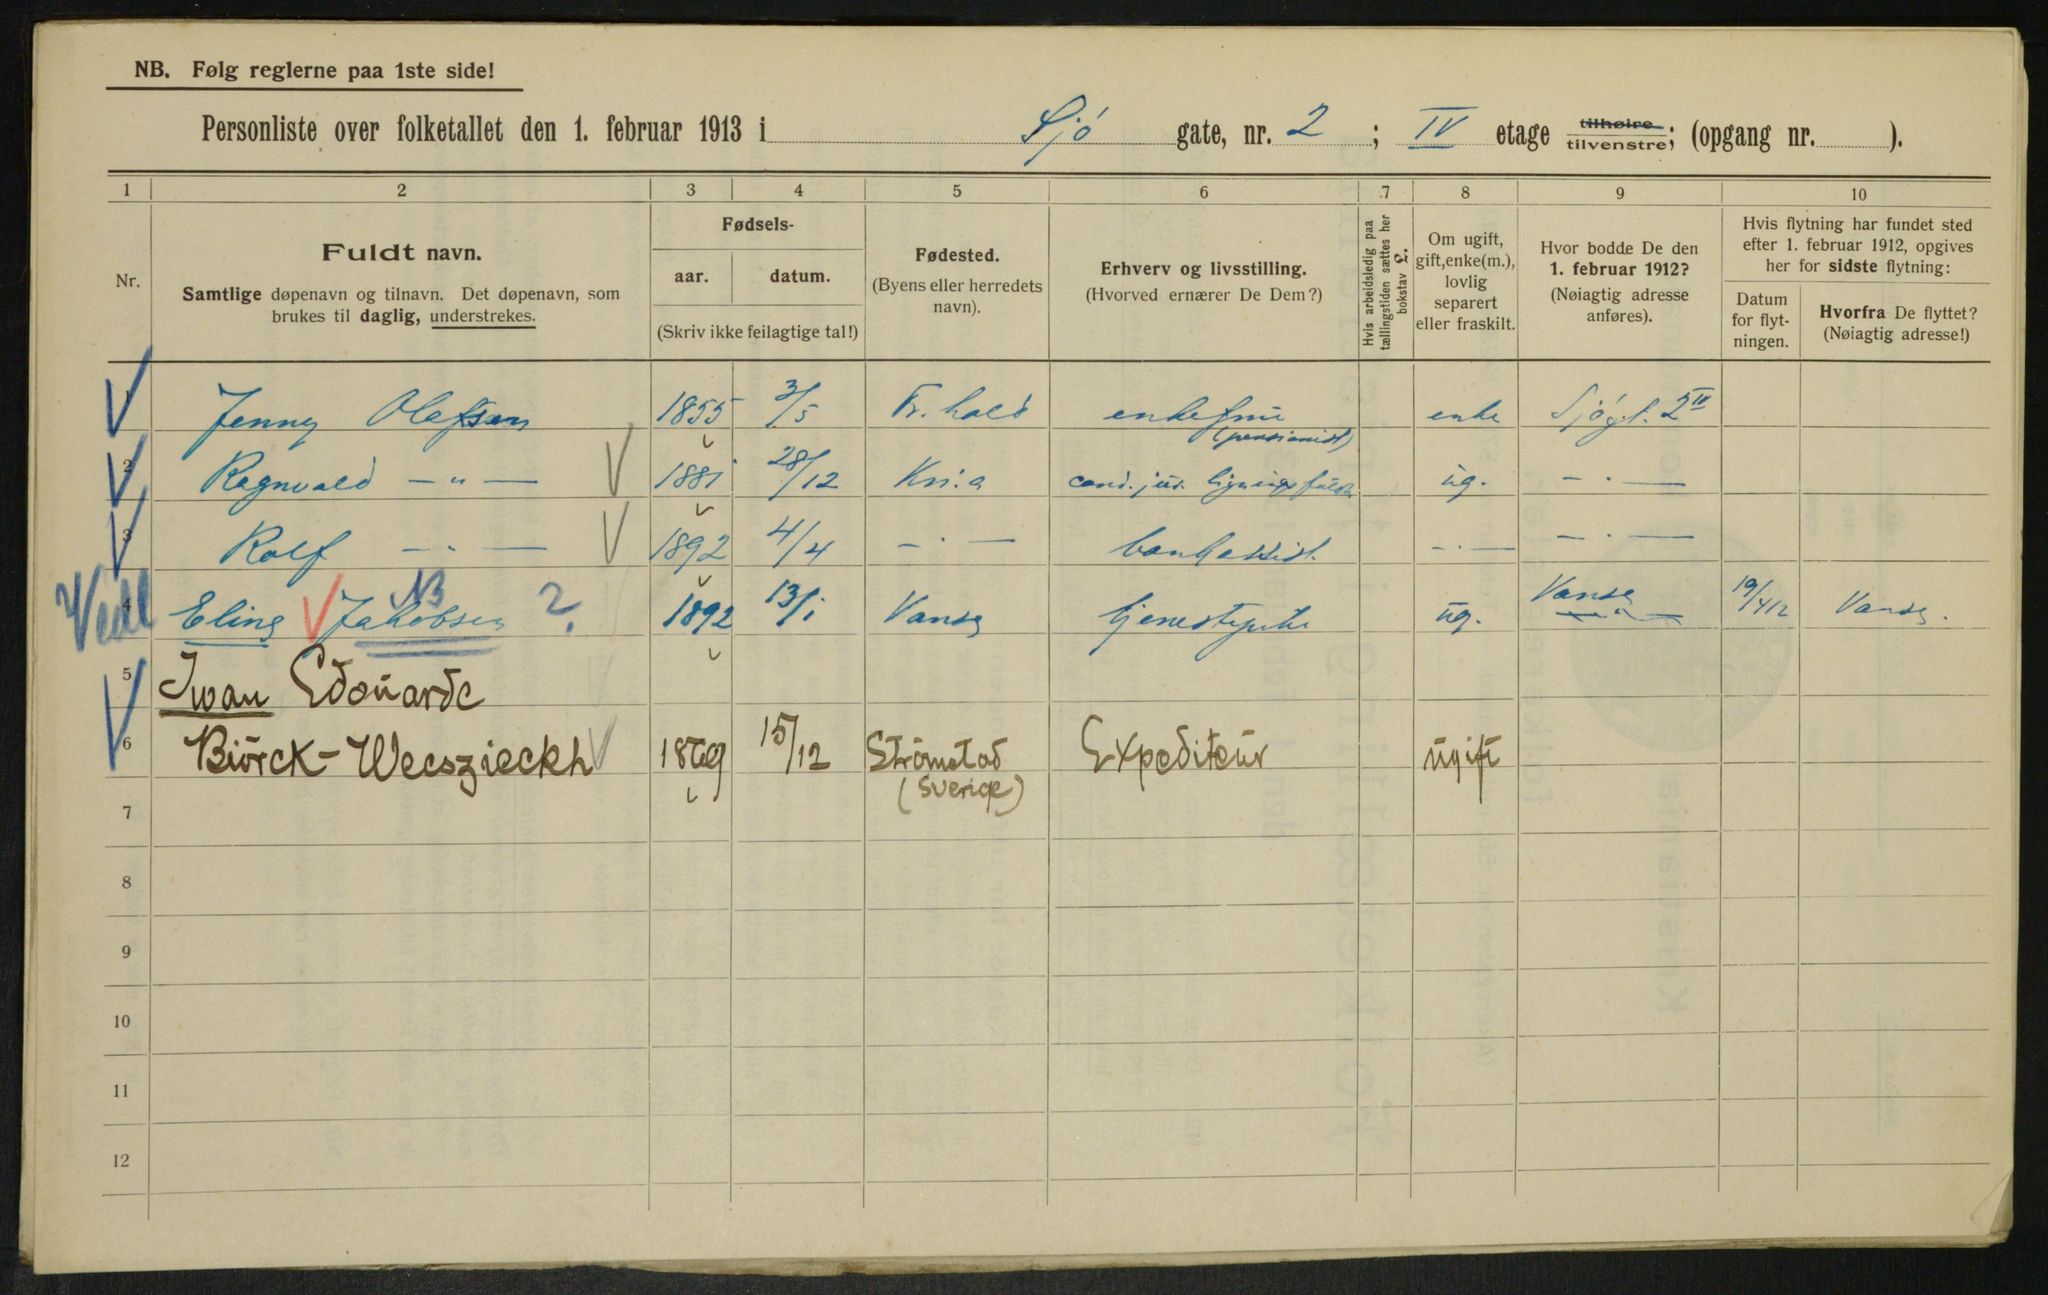 NB. Følg reglerne paa 1ste side!
Personliste over folketallet den 1. februar 1913 i Sjö gate, nr. 2 ; IV etage tilhøire tilvenstre; (opgang nr. ).
1 2 3 4 5 6 7 8 9 10
Nr.
Fuldt navn.
Samtlige døpenavn og tilnavn. Det døpenavn, som
brukes til daglig, understrekes.
Fødsels-
aar. datum.
(Skriv ikke feilagtige tal!)
Fødested.
(Byens eller herredets
navn).
Erhverv og livsstilling.
(Hvorved ernærer De Dem?)
Hvis arbeidsledig paa
tællingstiden sættes her
bokstav L.
Om ugift,
gift, enke(m.),
lovlig
separert
eller fraskilt.
Hvor bodde De den
1. februar 1912?
(Nøiagtig adresse
anføres).
Hvis flytning har fundet sted
efter 1. februar 1912, opgives
her for sidste flytning:
Datum
for flyt-
ningen.
Hvorfra De flyttet?
(Nøiagtig adresse!)
1 Jenny Olafsen 1855 3/5 Fr. hald enkefrue (pensionist) enke Sjögt. 2 IV
2 Ragnvald — " — 1881 28/12 Kri.a cand. jur. ug. — " —
3 Rolf — " — 1892 4/4 — " — bankassist. — " — — " —
Vedl 4 Eling Jakobsen NB ? 1892 13/1 Vanse tjenestepike ug. Vanse — " — 19/4 12 Vanse.
5 Iwan Edouarde
6 Biörck-Weeszieckh 1869 15/12 Strömstad Expediteur ugift
(Sverige)
7
8
9
10
11
12